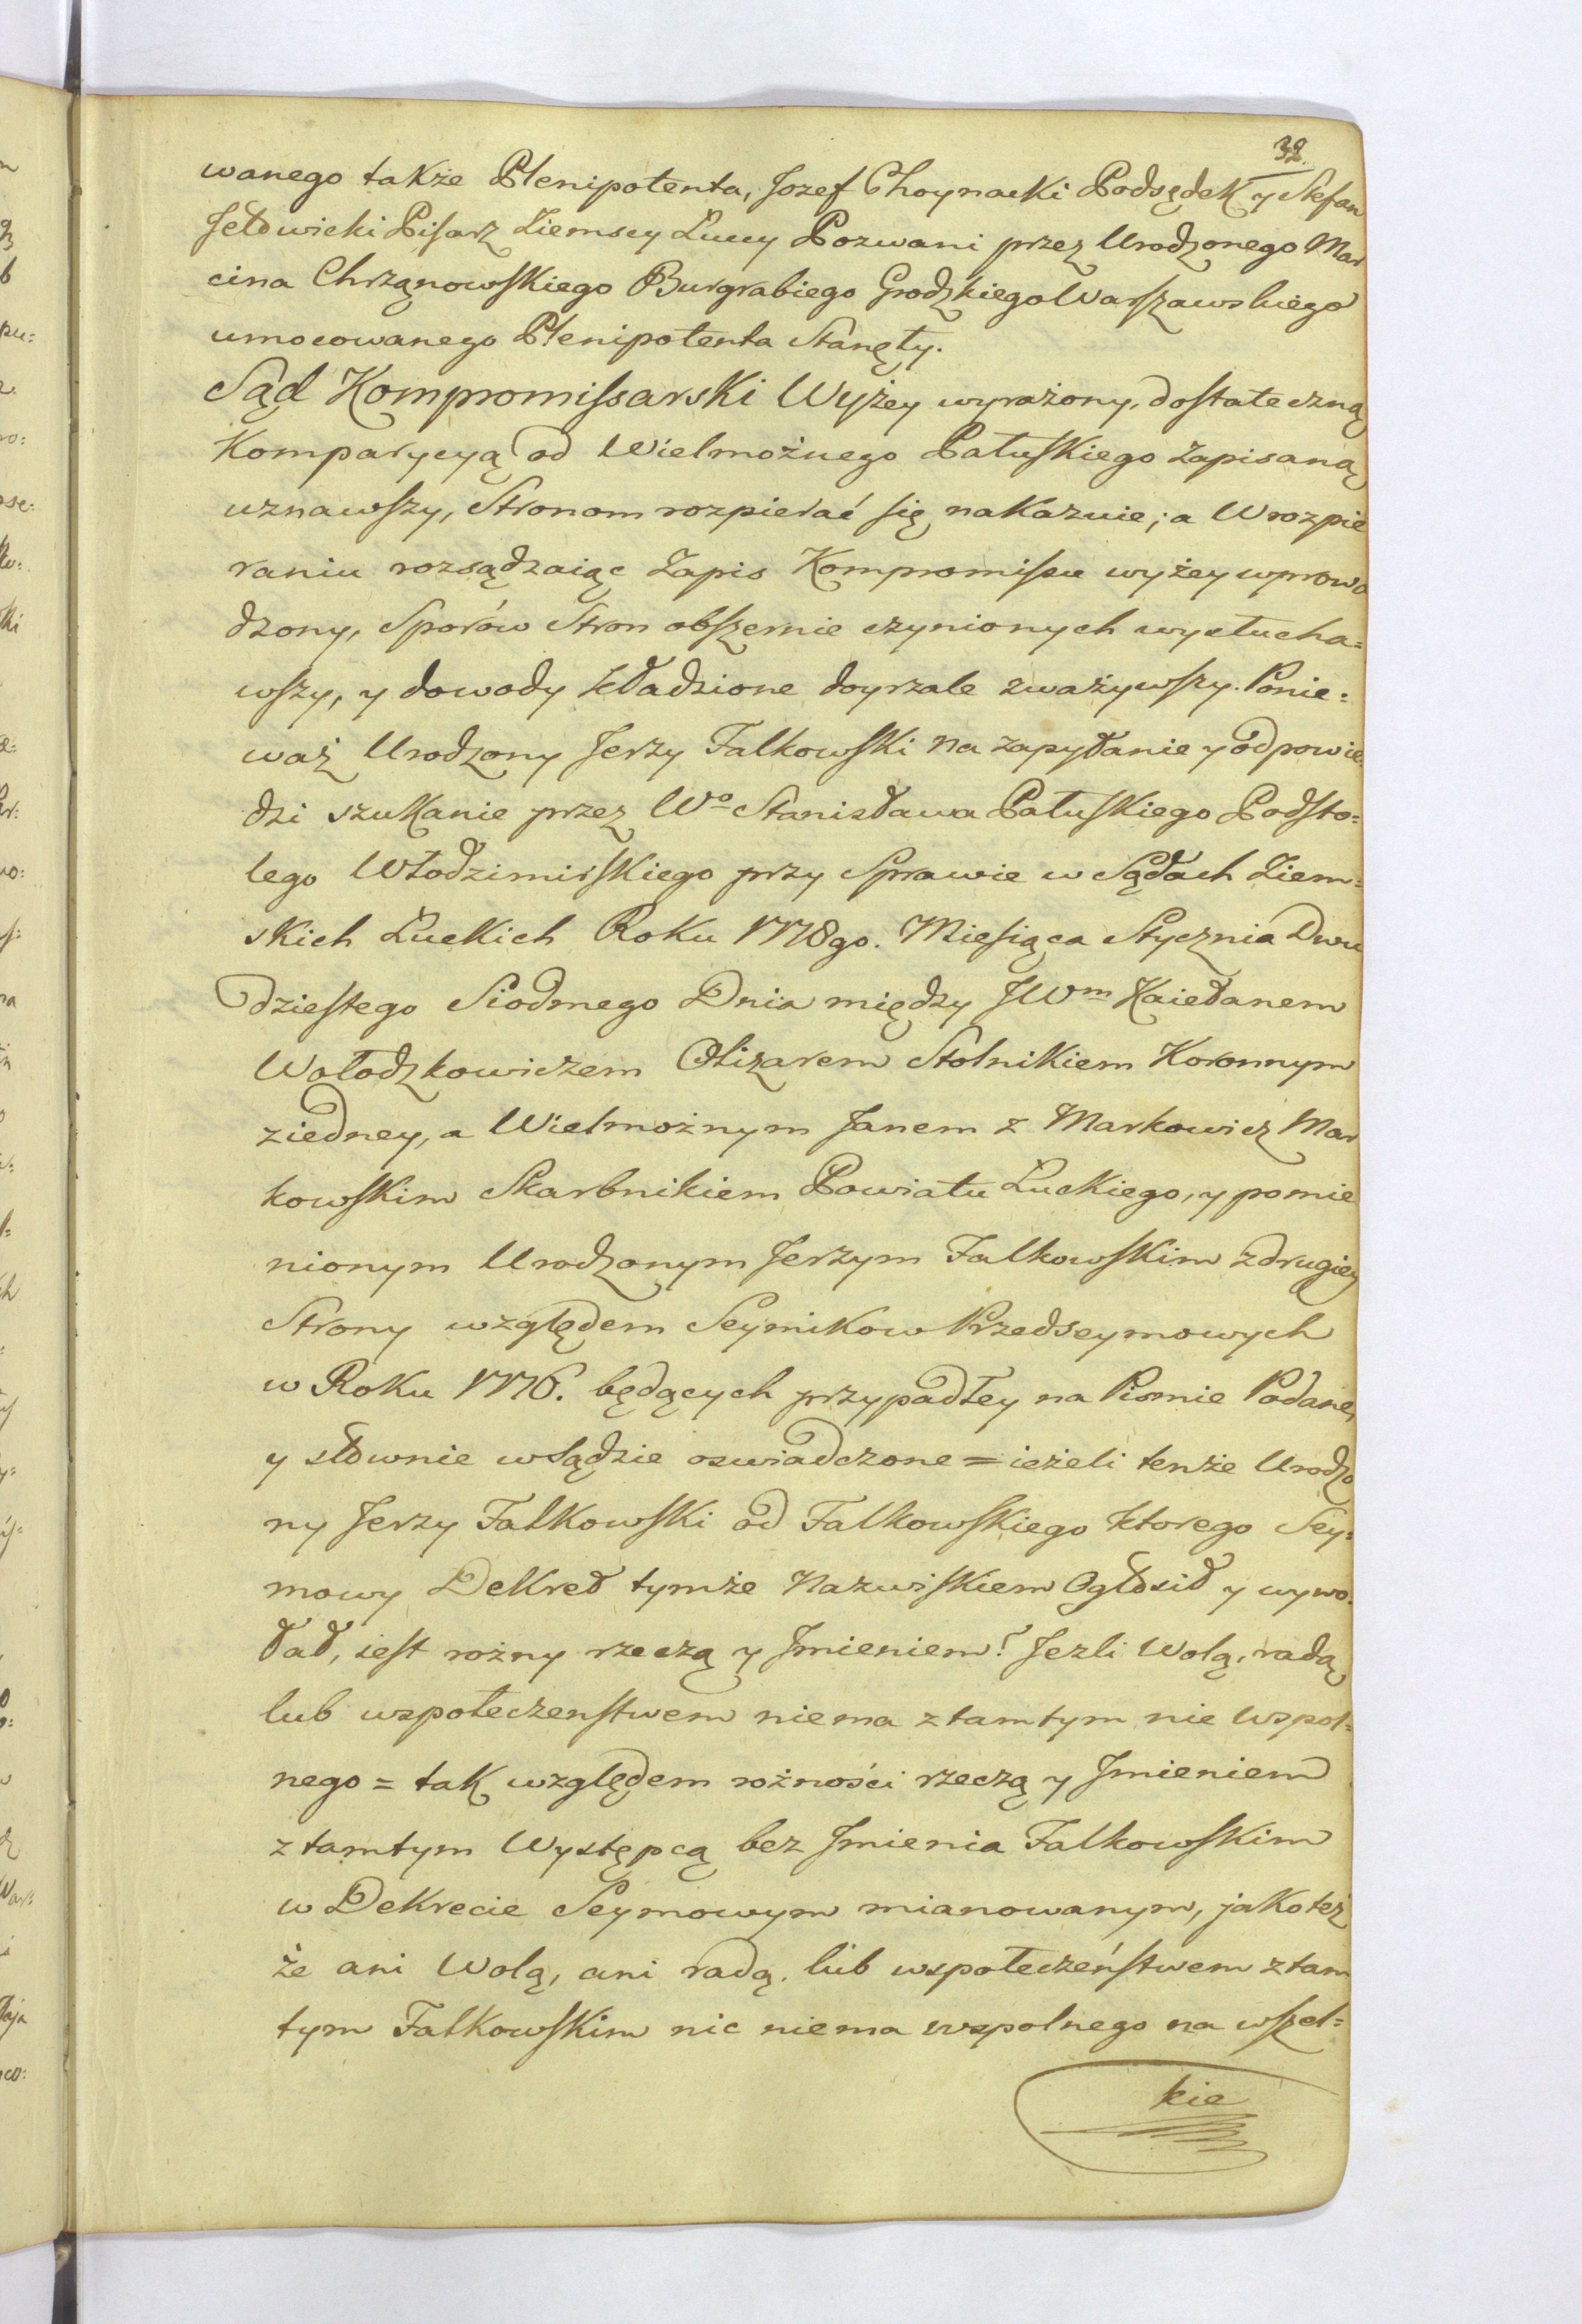 32.
wanego także Plenipotenta, Jozef Choynacki Podsędek y Stefan
Jełowicki Pisarz Ziemscy Łuccy Pozwani przez Urodzonego Mar
cina Chrząnowskiego Burgrabiego Grodzkiego Warszawskiego
umocowanego Plenipotenta Stanęły.
Sąd Kompromissarski Wyżey wyrażony, dostateczną
Komparycyą od Wielmożnego Pałuskiego zapisaną
uznawszy, Stronom rozpierać się nakazuie; a W rozpie
raniu rozsądzaiąc Zapis Kompromissu wyżey wprowa
dzony, Sporów Stron obszernie czynionych wysłucha=
wszy, y dowody kładzione doyrzale zważywszy. Ponie=
waż Urodzony Jerzy Falkowski na zapytanie y odpowie
dzi szukanie przez Wo Stanisława Pałuskiego Podsto=
lego Włodzimirskiego przy Sprawie w Sądach Ziem=
skich Łuckich Roku 1778go. Miesiąca Stycznia Dwu
dziestego Siodmego Dnia między JWm Kaietanem
Wołodzkowiczem Olizarem Stolnikiem Koronnym
ziedney, a Wielmożnym Janem z Markowicz Mar
kowskim Skarbnikiem Powiatu Łuckiego, y pomie
nionym Urodzonym Jerzym Falkowskim zdrugiey
Strony względem Seymikow Przedseymowych
w Roku 1776. będących przypadłey na Pismie Podane,
y słownie wSądzie oswiadczone = ieżeli tenże Urodzo
ny Jerzy Falkowski od Falkowskiego ktorego Sey=
mowy Dekret tymże Nazwiskiem Ogłosił y wywo=
łał, iest rożny rzeczą y Jmieniem? Jezli Wolą, radą
lub wspołeczenstwem niema ztamtym nic wspol=
nego = tak względem rożności rzeczą y Jmieniem
ztamtym Występcą bez Jmienia Falkowskim
w Dekrecie Seymowym mianowanym, jako też
że ani Wolą, ani radą, lub wspołeczeństwem ztam
tym Falkowskim nic niema wspolnego na wszel=
kie